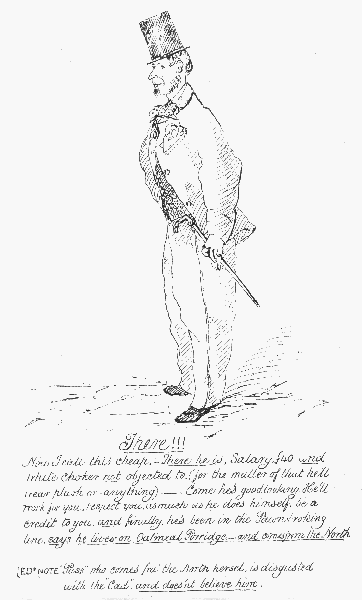 There!!!
Now I call this cheap. — There he is, Salary £40 and
white choker not objected to! (for the matter of that he'll
wear plush or anything) —. Come he's good looking He'll
work for you, respect you, as much as he does himself, be a
credit to you, and finally, he's been in the Pawnbroking
line, says he lives on Oatmeal Porridge — and comes from the North
(EDs NOTE "Puss" who comes fra' the North hersel, is disgusted
with the "Cad" and does'nt believe him.